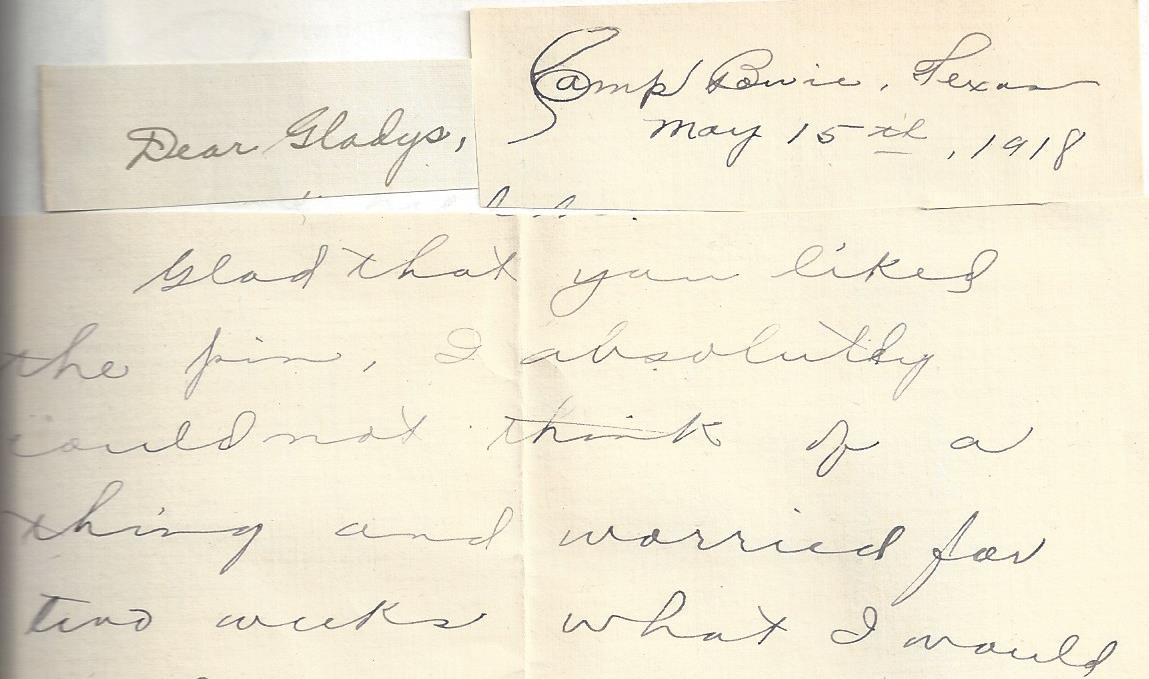 Camp Bowie, Texas
May 15th, 1918
Dear Gladys,
Glad that you liked
the pin, I absolutly
could not think of a
thing and worried for
two weeks what I would